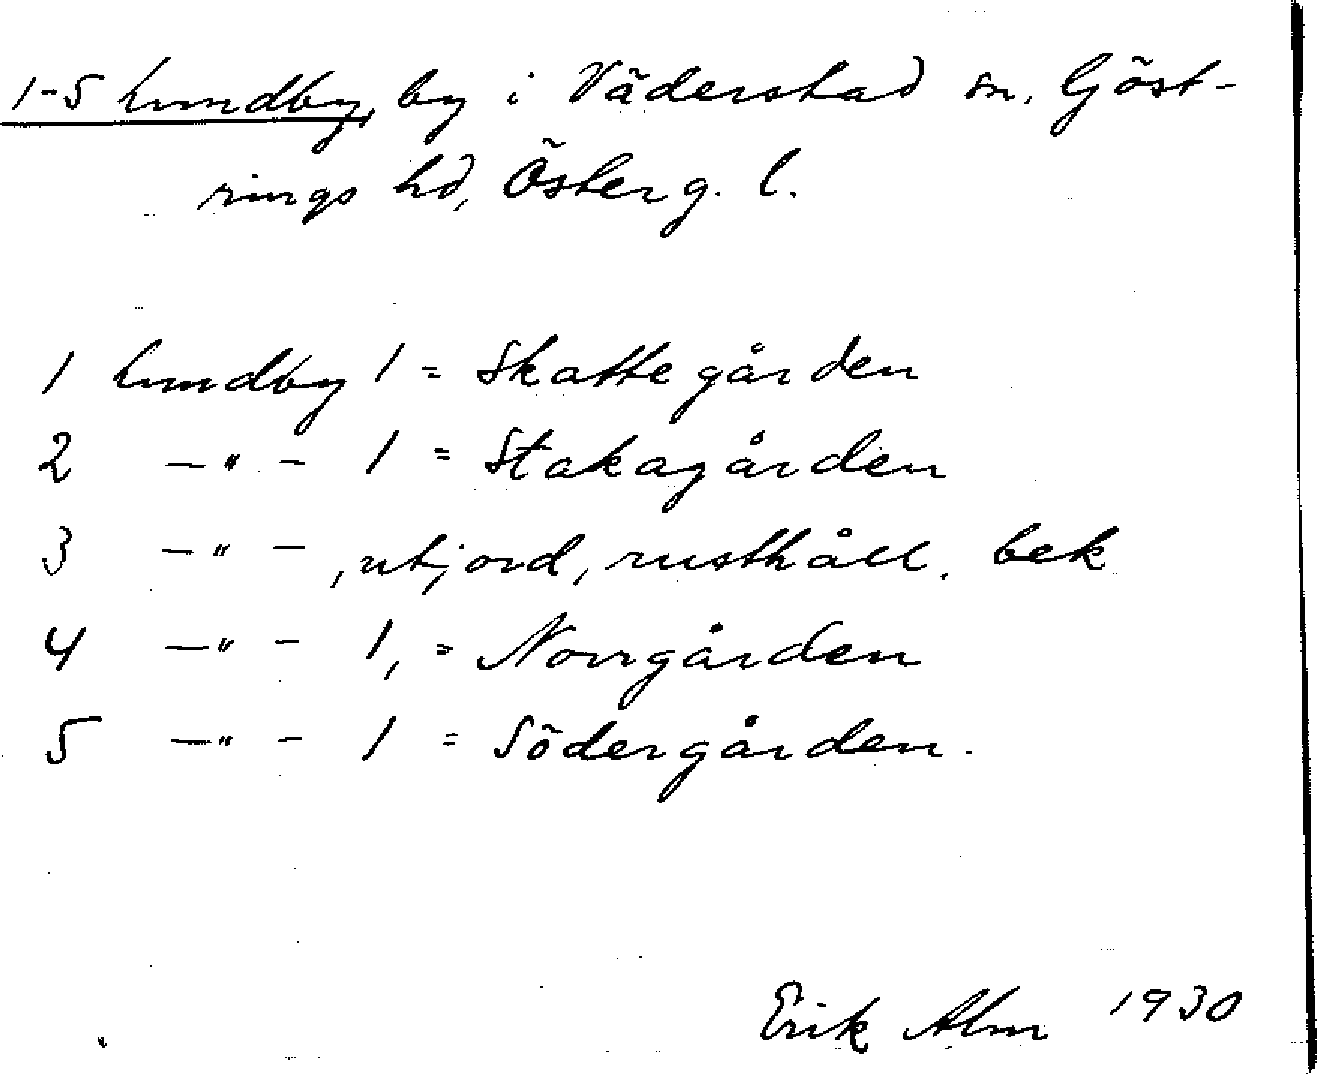 1-5 Lundby, by i Väderstad sn. Göst-
rings hd, Österg. l.
1 Lundby 1 = Skattegården
2 —"- 1 = Stakagården
3 —"-, utjord, rusthåll. bek
4 —"- 1, = Norrgården
5 —"- 1 = Södergården.
Erik Alm 1930